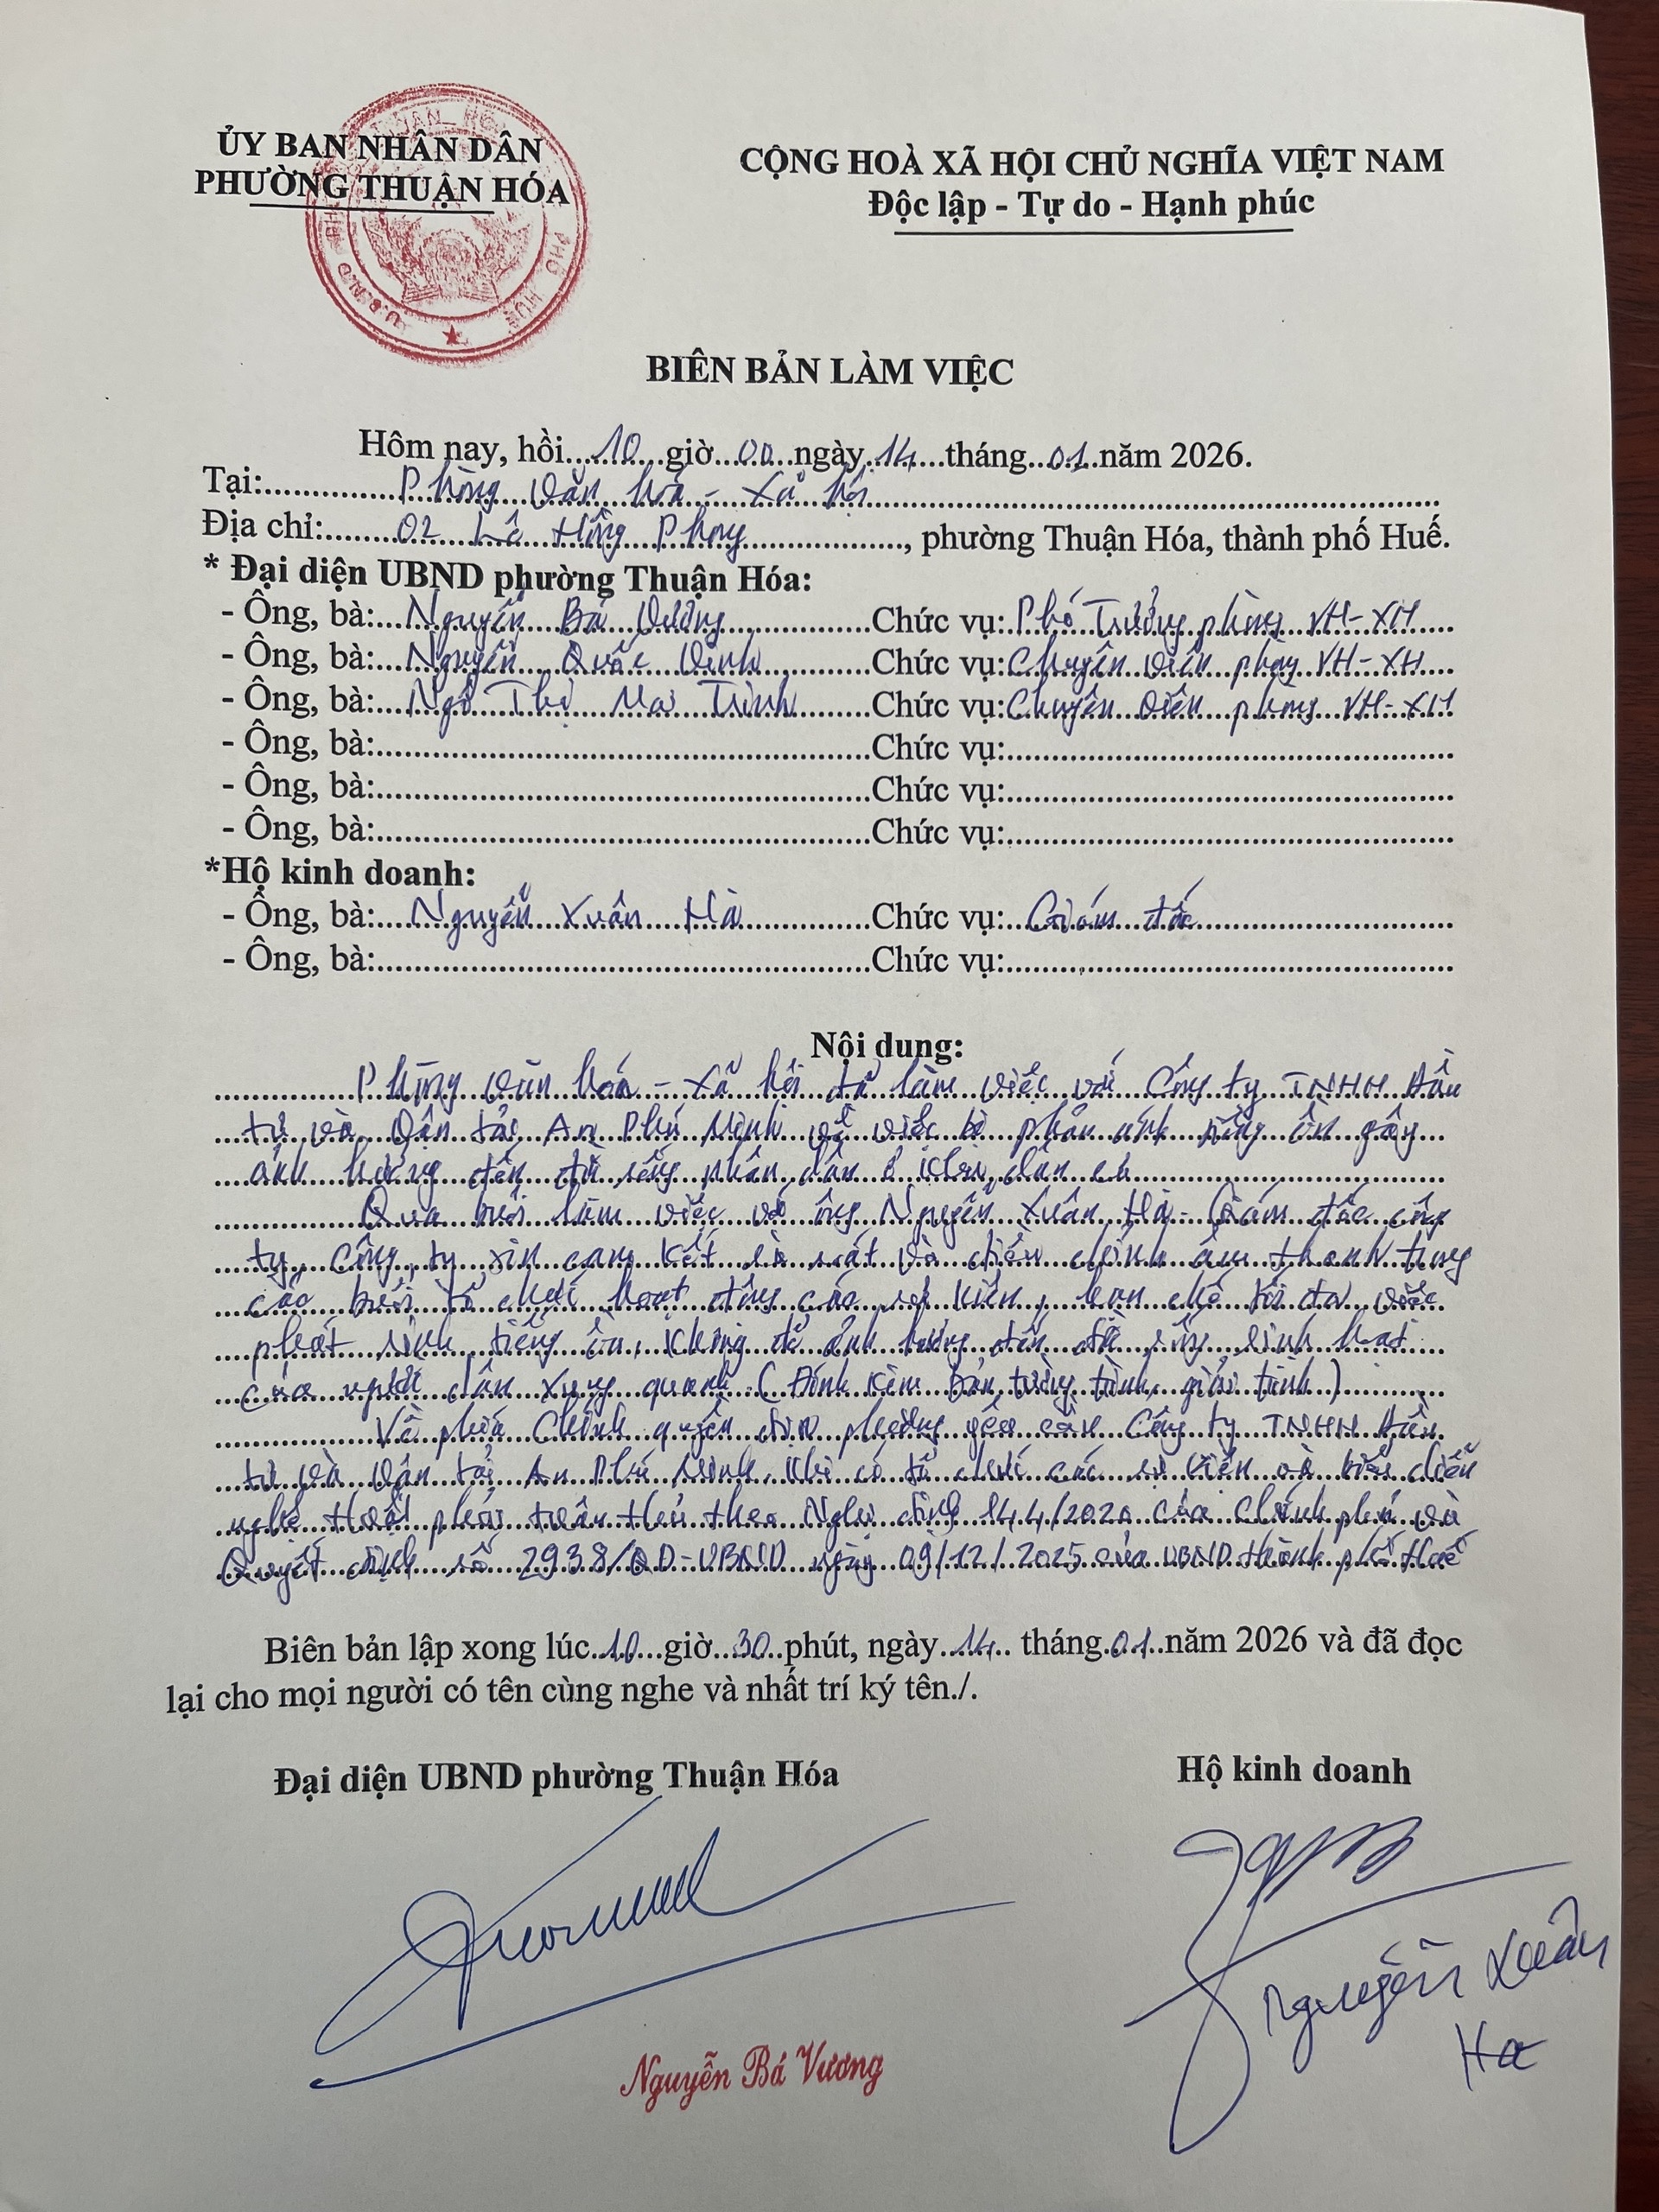 ỦY BAN NHÂN DÂN
PHƯỜNG THUẬN HÓA
CỘNG HOÀ XÃ HỘI CHỦ NGHĨA VIỆT NAM
Độc lập - Tự do - Hạnh phúc
BIÊN BẢN LÀM VIỆC
Hôm nay, hồi 10 giờ 00 ngày 14 tháng 01 năm 2026.
Tại: Phòng Văn hoá - Xã hội
Địa chỉ: 02 Lê Hồng Phong, phường Thuận Hóa, thành phố Huế.
* Đại diện UBND phường Thuận Hóa:
- Ông, bà: Nguyễn Bá Vương Chức vụ: Phó Trưởng phòng VH-XH
- Ông, bà: Nguyễn Quốc Vinh Chức vụ: Chuyên viên phòng VH-XH
- Ông, bà: Ngô Thị Mai Trinh Chức vụ: Chuyên viên phòng VH-XH
- Ông, bà: Chức vụ:
- Ông, bà: Chức vụ:
- Ông, bà: Chức vụ:
*Hộ kinh doanh:
- Ông, bà: Nguyễn Xuân Hà Chức vụ: Giám đốc
- Ông, bà: Chức vụ:
Nội dung:
Phòng Văn hoá - Xã hội đã làm việc với Công ty TNHH Đầu
tư và Vận tải An Phú Minh về việc bị phản ánh tiếng ồn gây
ảnh hưởng đến đời sống nhân dân ở khu dân cư
Qua buổi làm việc với ông Nguyễn Xuân Hà - Giám đốc công
ty, Công ty xin cam kết rà soát và điều chỉnh âm thanh trong
các buổi tổ chức hoạt động các sự kiện, hạn chế tối đa việc
phát sinh tiếng ồn, không để ảnh hưởng đến đời sống sinh hoạt
của người dân xung quanh (Đính kèm bản tường trình, giải trình)
Về phía Chính quyền địa phương yêu cầu Công ty TNHH Đầu
tư và Vận tải An Phú Minh, khi có tổ chức các sự kiện và biểu diễn
nghệ thuật phải tuân thủ theo Nghị định 144/2020 của Chính phủ và
Quyết định số 2938/QĐ-UBND ngày 09/12/2025 của UBND thành phố Huế
Biên bản lập xong lúc 10 giờ 30 phút, ngày 14 tháng 01 năm 2026 và đã đọc
lại cho mọi người có tên cùng nghe và nhất trí ký tên./.
Đại diện UBND phường Thuận Hóa
Hộ kinh doanh
Nguyễn Bá Vương
Nguyễn Xuân
Hà